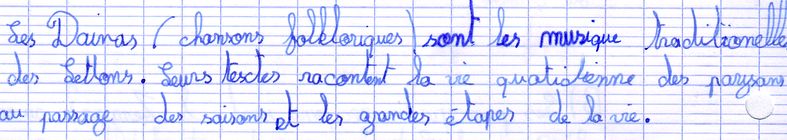 Les Dainas (chansons folkloriques) sont les musique traditionnelle
des Lettons. Leurs textes racontent la vie quotidienne des paysans
au passage des saisons et les grandes étapes de la vie.